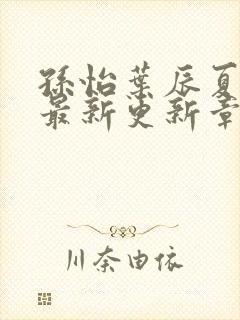 孫怡葉辰夏
最新更新章
川奈由依